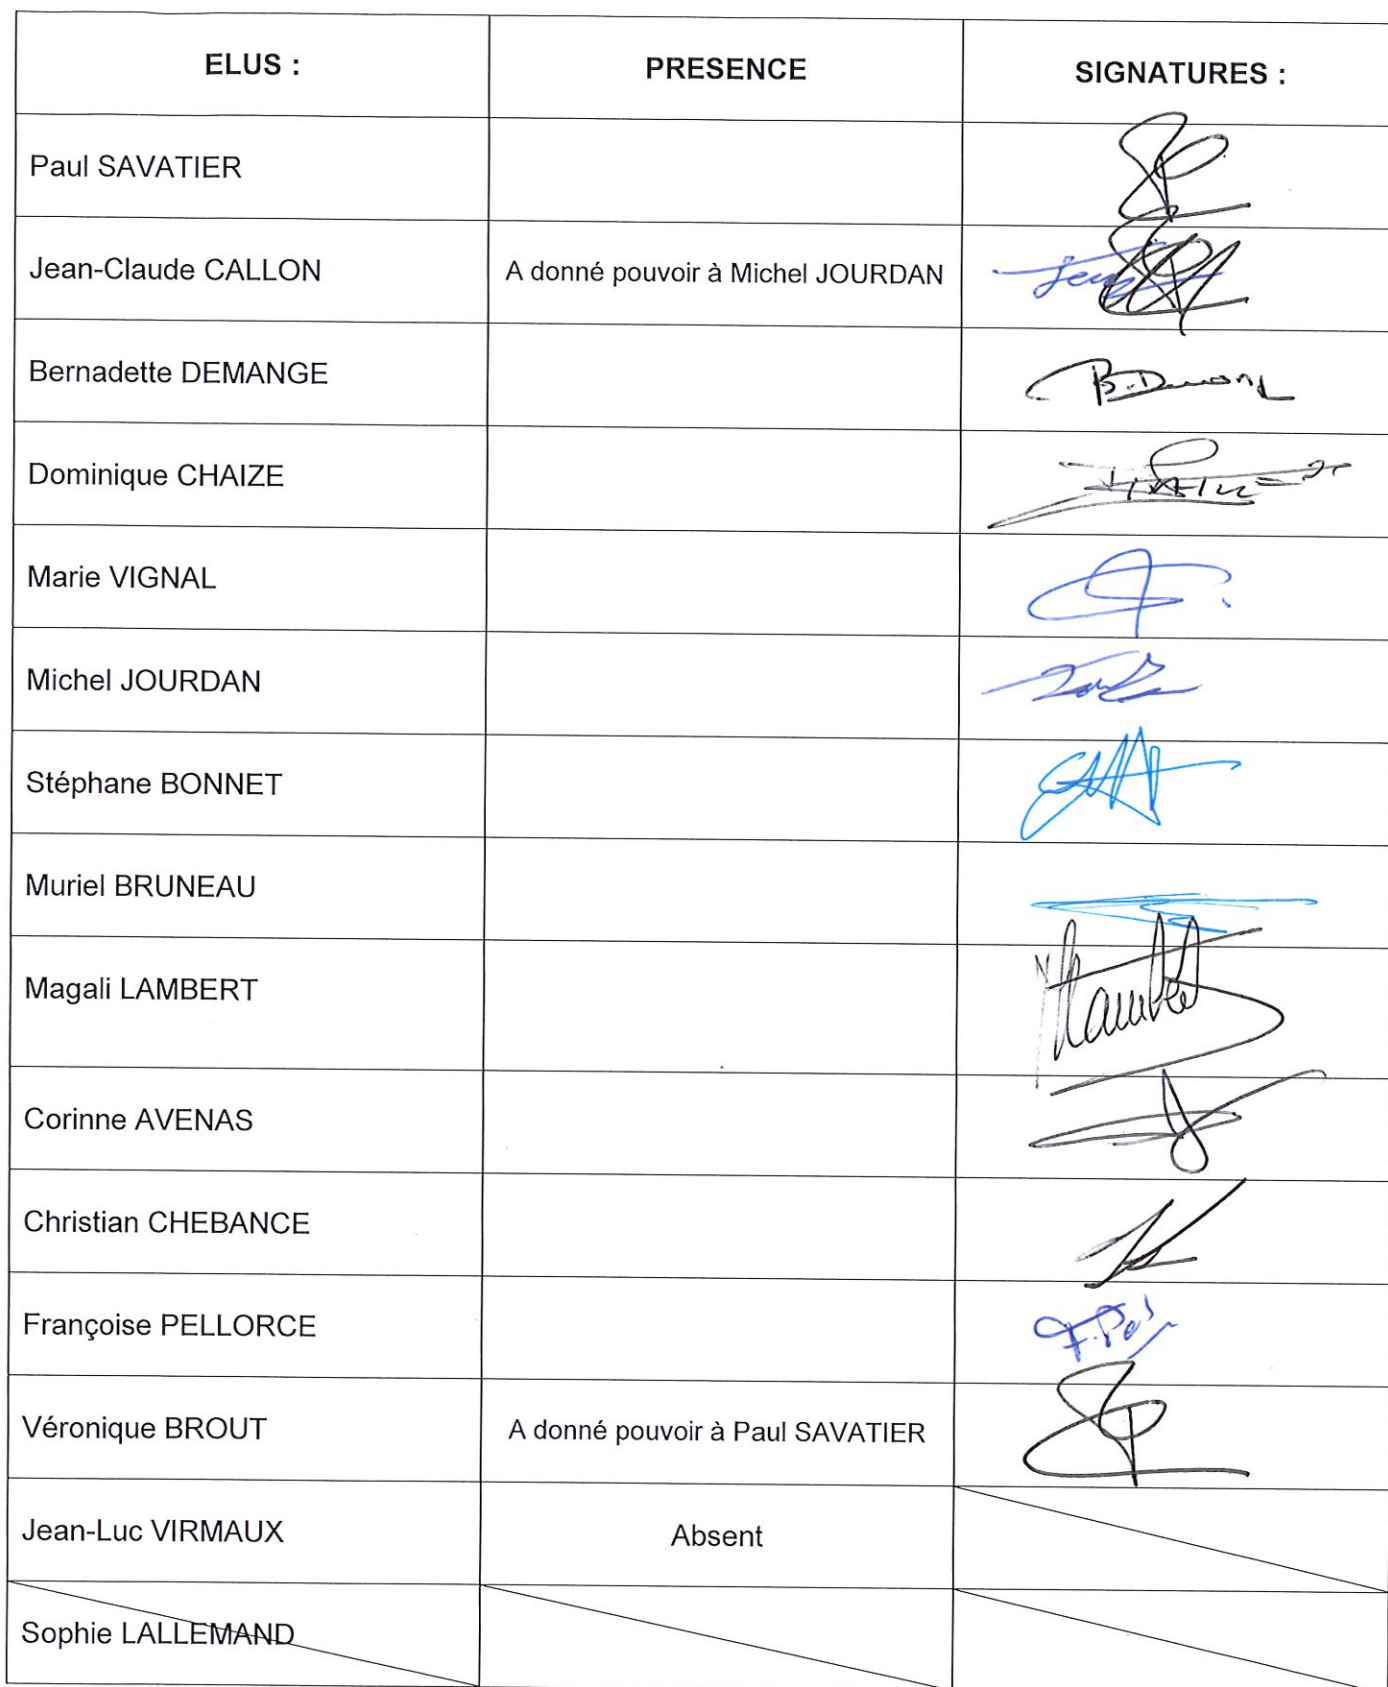 ELUS :
PRESENCE
SIGNATURES :
Paul SAVATIER
Jean-Claude CALLON
A donné pouvoir à Michel JOURDAN
Bernadette DEMANGE
Dominique CHAIZE
Marie VIGNAL
Michel JOURDAN
Stéphane BONNET
Muriel BRUNEAU
Magali LAMBERT
Corinne AVENAS
Christian CHEBANCE
Françoise PELLORCE
Véronique BROUT
A donné pouvoir à Paul SAVATIER
Jean-Luc VIRMAUX
Absent
Sophie LALLEMAND